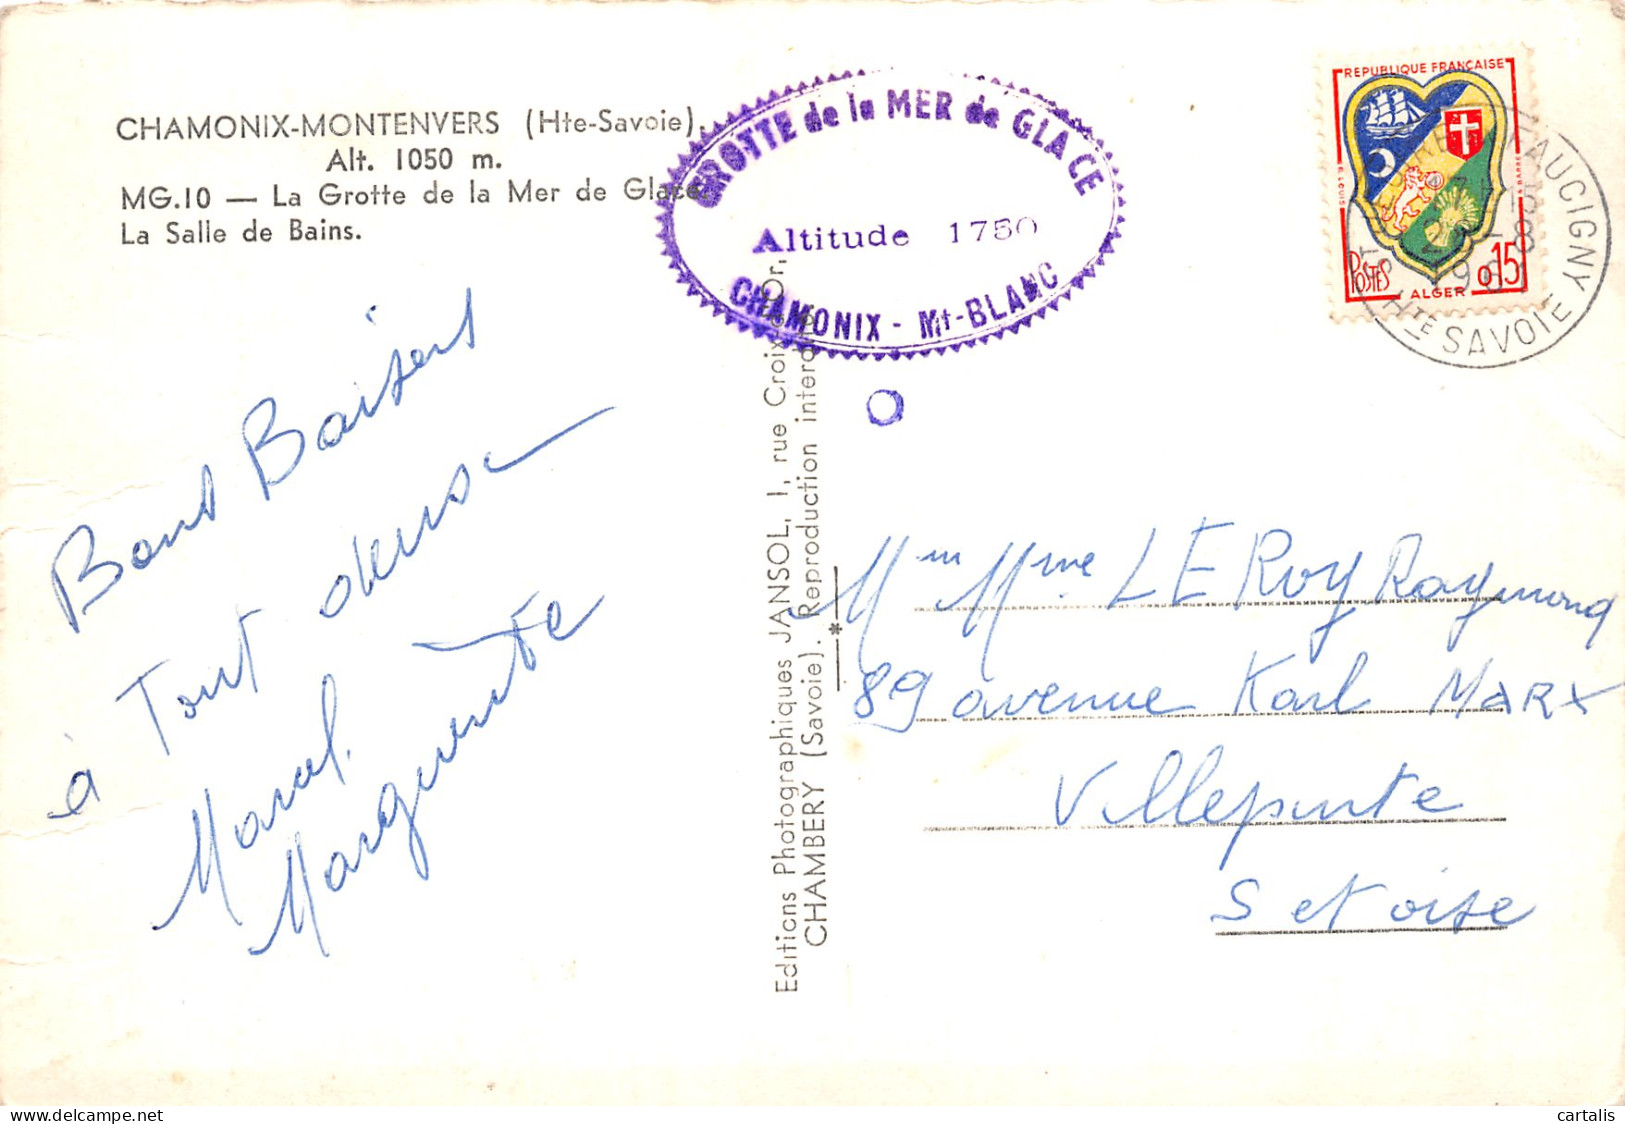 CHAMONIX-MONTENVERS (Hte-Savoie)
Alt. 1050 m.
MG.10 — La Grotte de la Mer de Glace
La Salle de Bains.
GROTTE de la MER de GLACE
Altitude 1750
CHAMONIX - Mt-BLANC
REPUBLIQUE FRANÇAISE
POSTES
ALGER
0,15
FAUCIGNY
HTE SAVOIE
Bons Baisers
à Tout deux
Marcel.
Marguerite
Editions Photographiques JANSOL, 1, rue Croix-d'Or,
CHAMBERY (Savoie). Reproduction interdite
Mme LEROY Raymond
89 avenue Karl MARX
Villepinte
S et oise
cartalis